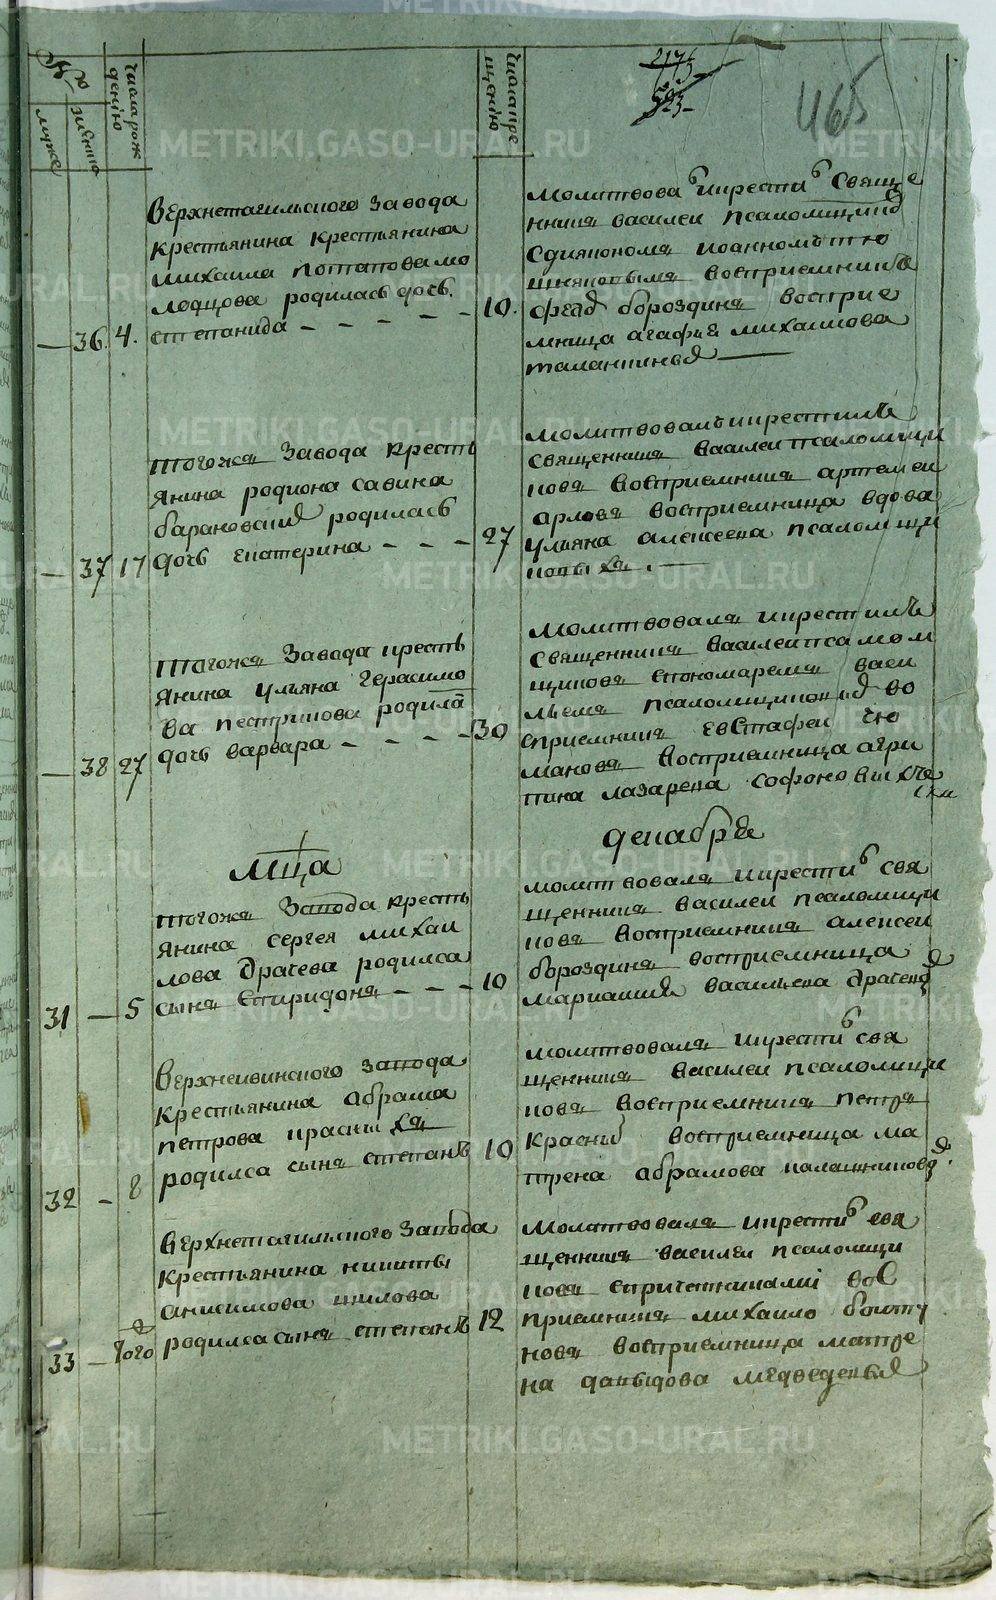 METRIKI.GASO-URAL.RU
465
Числа рож
дению
Числа кре
щению
муже
женъ
Верхнетагильского завода
крестьянина крестьянина
михаила потапова мо
лодцова родилась дочь
степанида
36. 4.
10.
молитвова и крести свяще
нникъ василеи псаломщико
сдиякономъ иоанномъ тю
шняковымъ восприемникъ
федо бороздинъ восприе
мница агафья михаилова
таланкиныя
тогожъ завода кресть
янина родиона савина
барановския родилась
дочь екатерина
37 17
27
молитвовалъ и крестилъ
священникъ василеи псаломщи
ковъ восприемникъ артемеи
арловъ восприемница вдова
ульяна алексеева псаломщи
ковыхъ
тогожъ завода кресть
янина ульяна герасимо
ва пестрикова родила
дочь варвара
38 27
30
молитвовалъ и крестилъ
священникъ василеи псалом
щиковъ спономаремъ васи
льемъ псаломщиковы во
сприемникъ евстафеи
мановъ восприемница агри
пина лазарева софоновых
мца
декабря
тогожъ завода кресть
янина сергея михаи
лова драчева родился
сынъ спиридонъ
31 5
10
молитвовалъ и крести свя
щенникъ василеи псаломщи
ковъ восприемникъ алексеи
бороздинъ восприемница
васильева драчева
верхнеивинского завода
крестьянина абрама
петрова красныхъ
родился сынъ степанъ
32 8
10
молитвовалъ и крести свя
щенникъ василеи псаломщи
ковъ восприемникъ петръ
красны восприемница ма
трена абрамова калашникова
верхнетагильского завода
крестьянина никиты
анисимова шилова
родился сынъ степанъ
33
12
молитвовалъ и крести свя
щенникъ василеи псаломщи
ковъ спричетниками вос
приемникъ михаило
новъ восприемница матре
на давыдова медведевыя